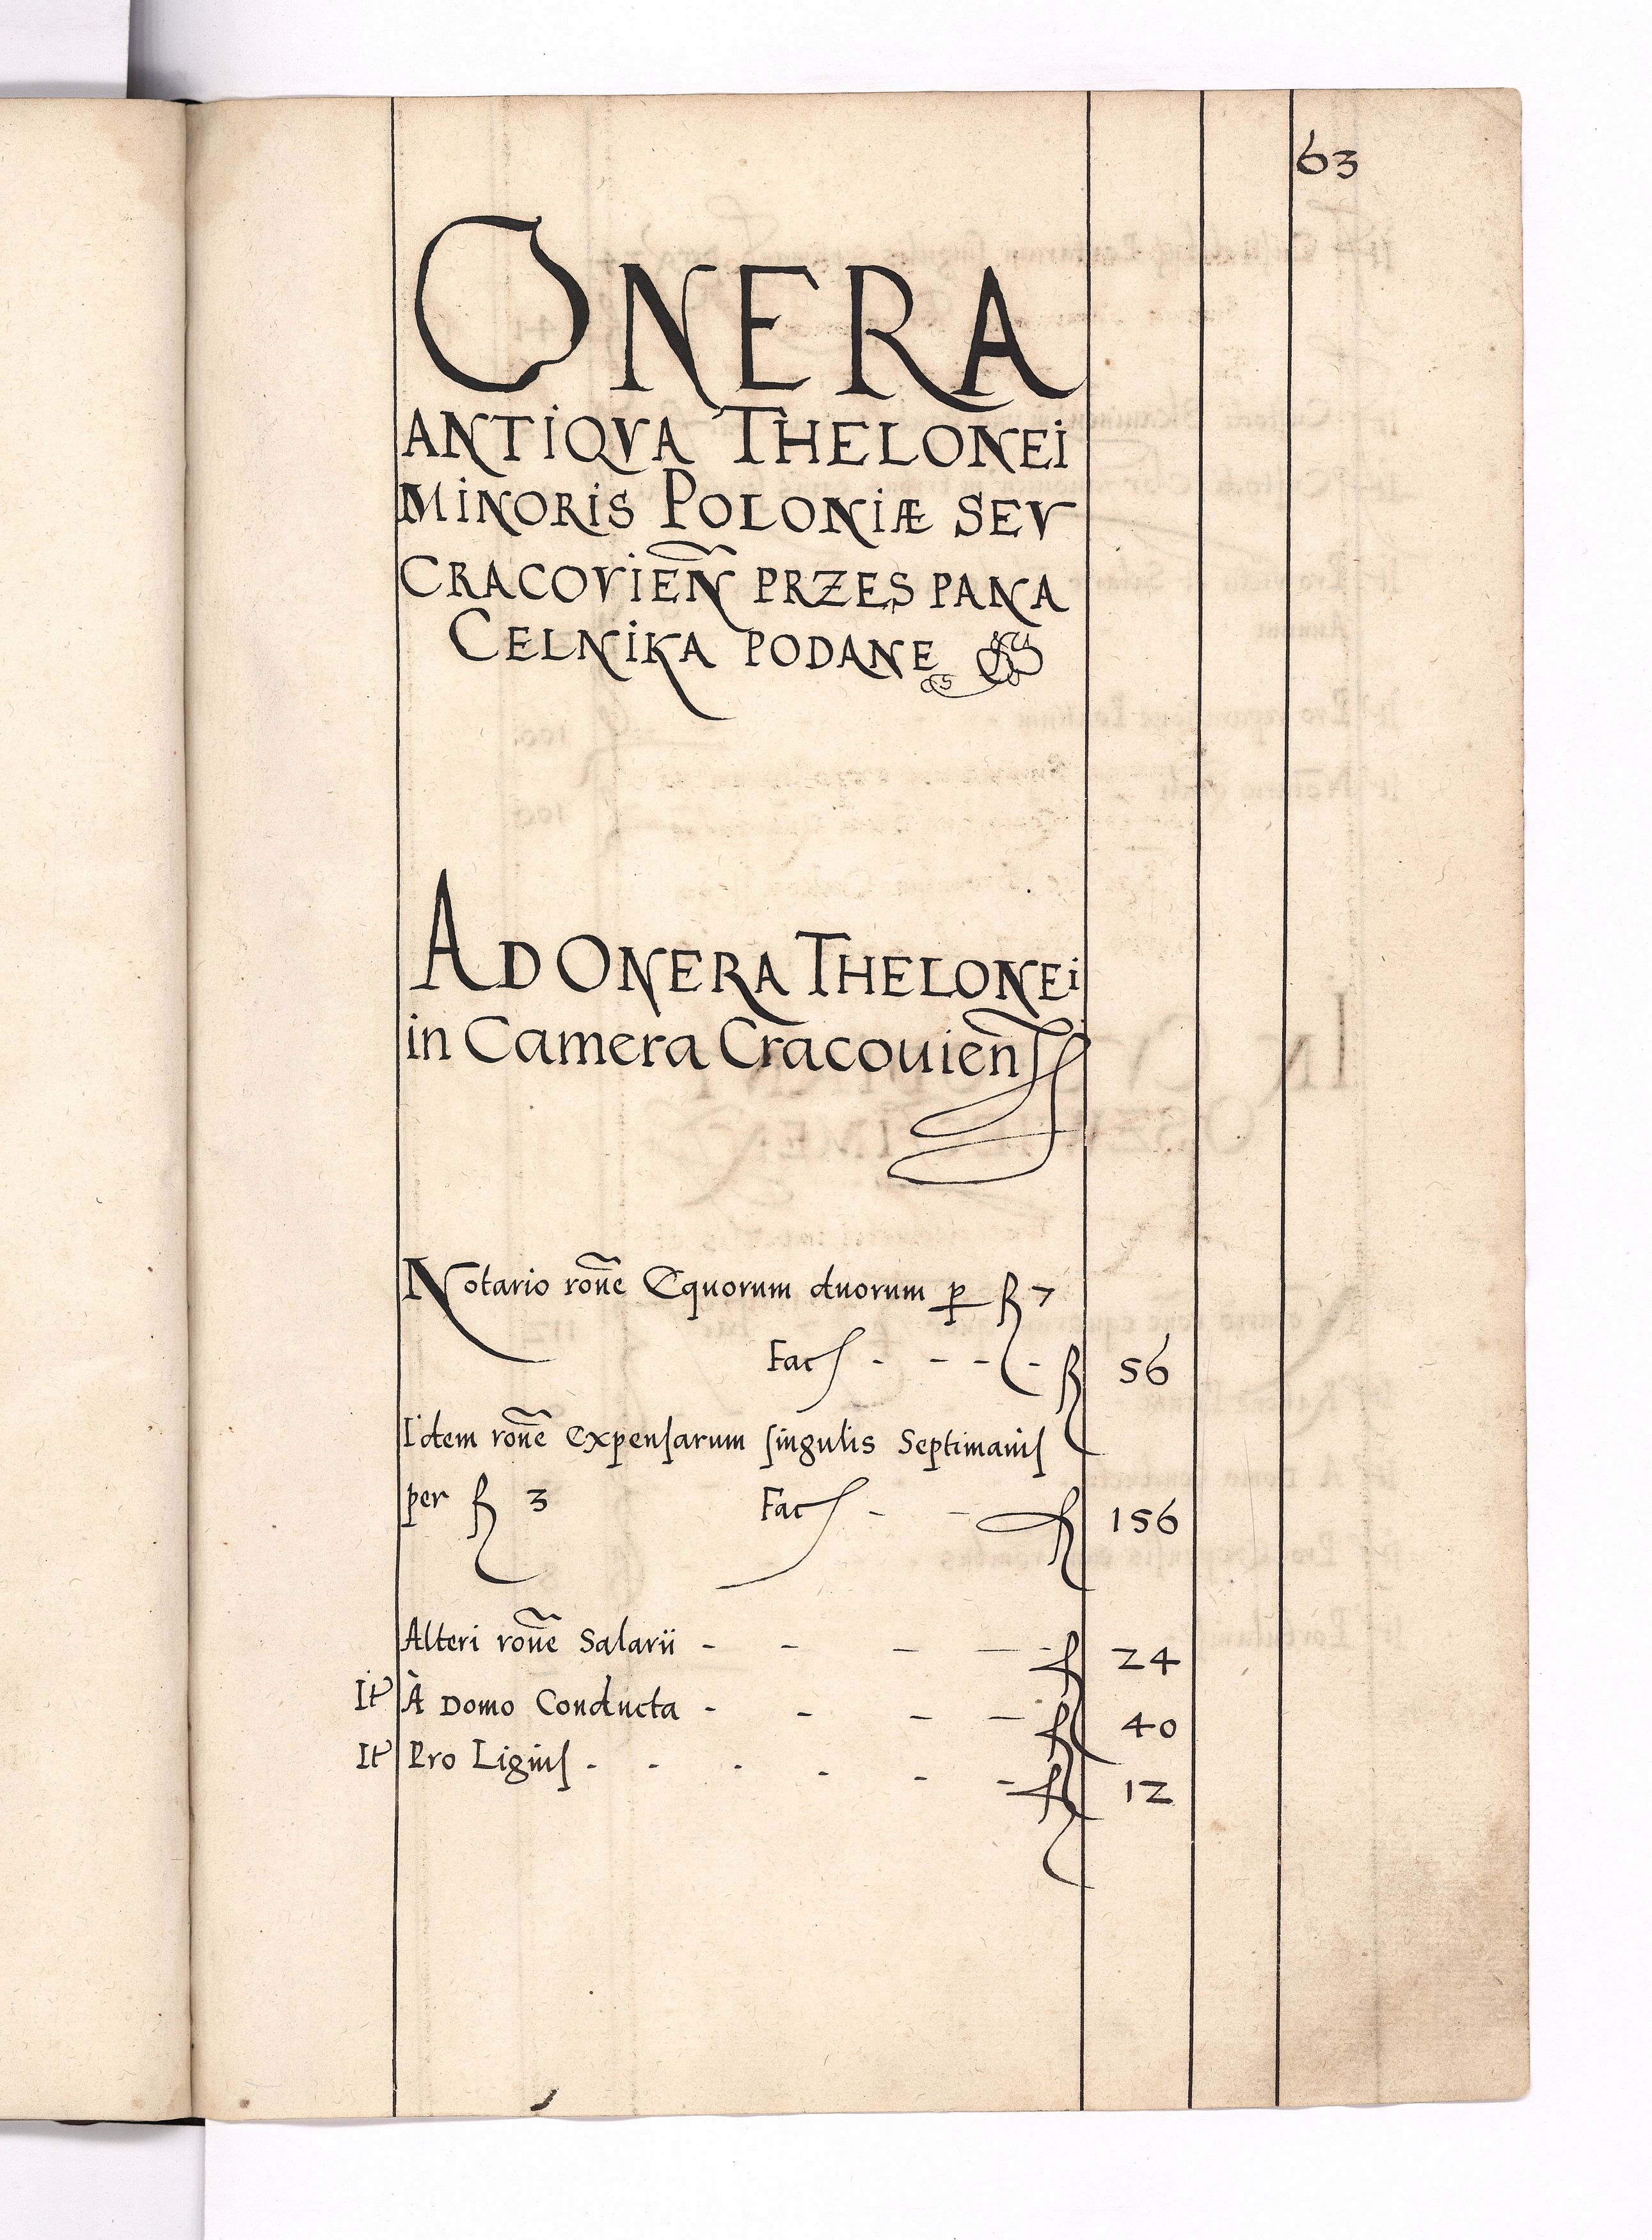 63
ONERA
ANTIQVA THELONEI
MINORIS POLONIÆ SEV
CRACOVIEÑ PRZES PANA
CELNIKA PODANE
AD ONERA THELONEI
in Camera Cracouien̄
Notario roñe Equorum duorum p̱ fl 7
Fac - - - - fl 56
Idem roñe Expensarum singulis Septimanis
per fl 3 Fac - - fl 156
Alteri roñe Salarii - - - - fl 24
It À Domo Conducta - - - - fl 40
It Pro Lignis - - - - - - fl 12